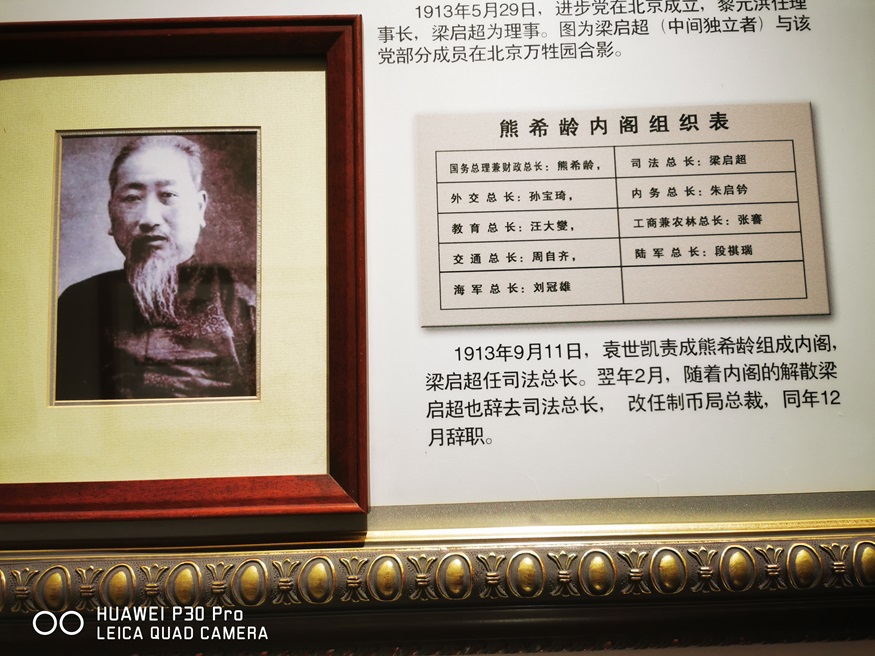 1913年5月29日，进步党在北京成立，黎元洪任理
事长，梁启超为理事。图为梁启超（中间独立者）与该
党部分成员在北京万牲园合影。
熊希龄内阁组织表
国务总理兼财政总长：熊希龄，
司法总长：梁启超
外交总长：孙宝琦，
内务总长：朱启钤
教育总长：汪大燮，
工商兼农林总长：张謇
交通总长：周自齐，
陆军总长：段祺瑞
海军总长：刘冠雄
1913年9月11日，袁世凯责成熊希龄组成内阁，
梁启超任司法总长。翌年2月，随着内阁的解散梁
启超也辞去司法总长， 改任制币局总裁，同年12
月辞职。
HUAWEI P30 Pro
LEICA QUAD CAMERA